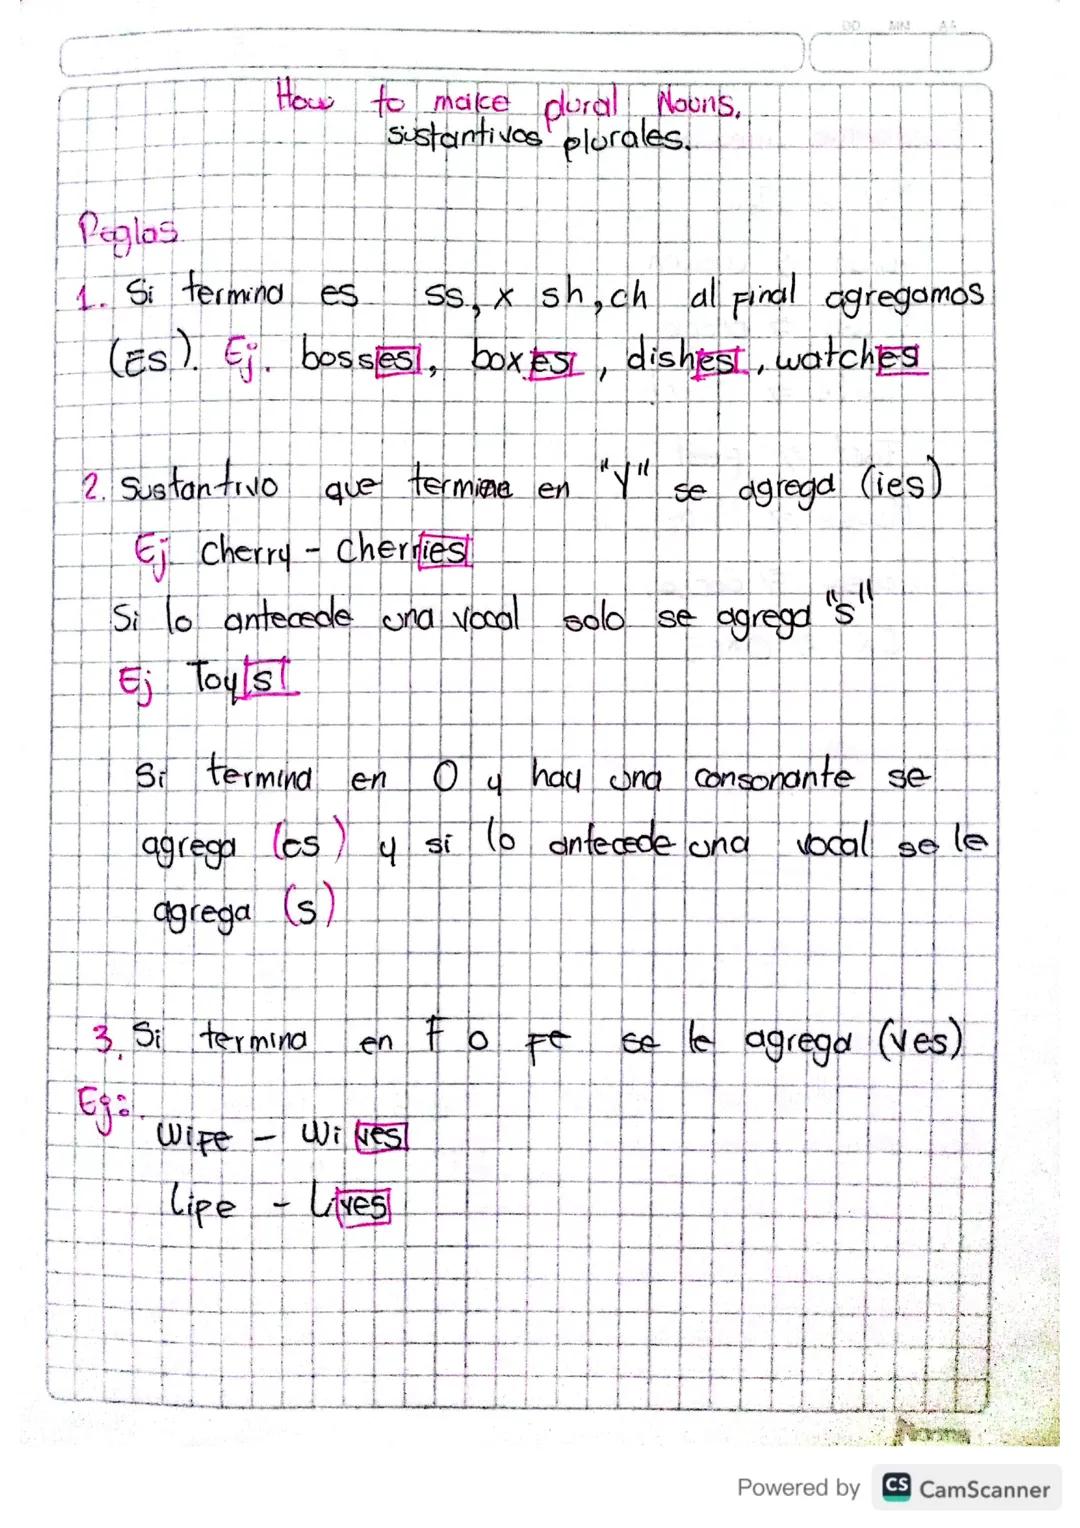 DD MM AA
How to make plural Nouns.
sustantivos plurales.
Reglas
1. Si termina es ss, x sh, ch al final agregamos
(ES). Ej. bosses, boxes, dishes, watches
2. Sustantivo que termine en "Y" se agrega (ies)
Ej Cherry - cherries
Si lo antecede una vocal solo se agrega "s"
Ej Toys
Si termina en O y hay una consonante se
agrega (es) y si lo antecede una vocal se le
agrega (s)
3. Si termina en F o FE se le agrega (ves)
Eg:.
Wife - Wives
Life - Lives
Norma
Powered by CS CamScanner